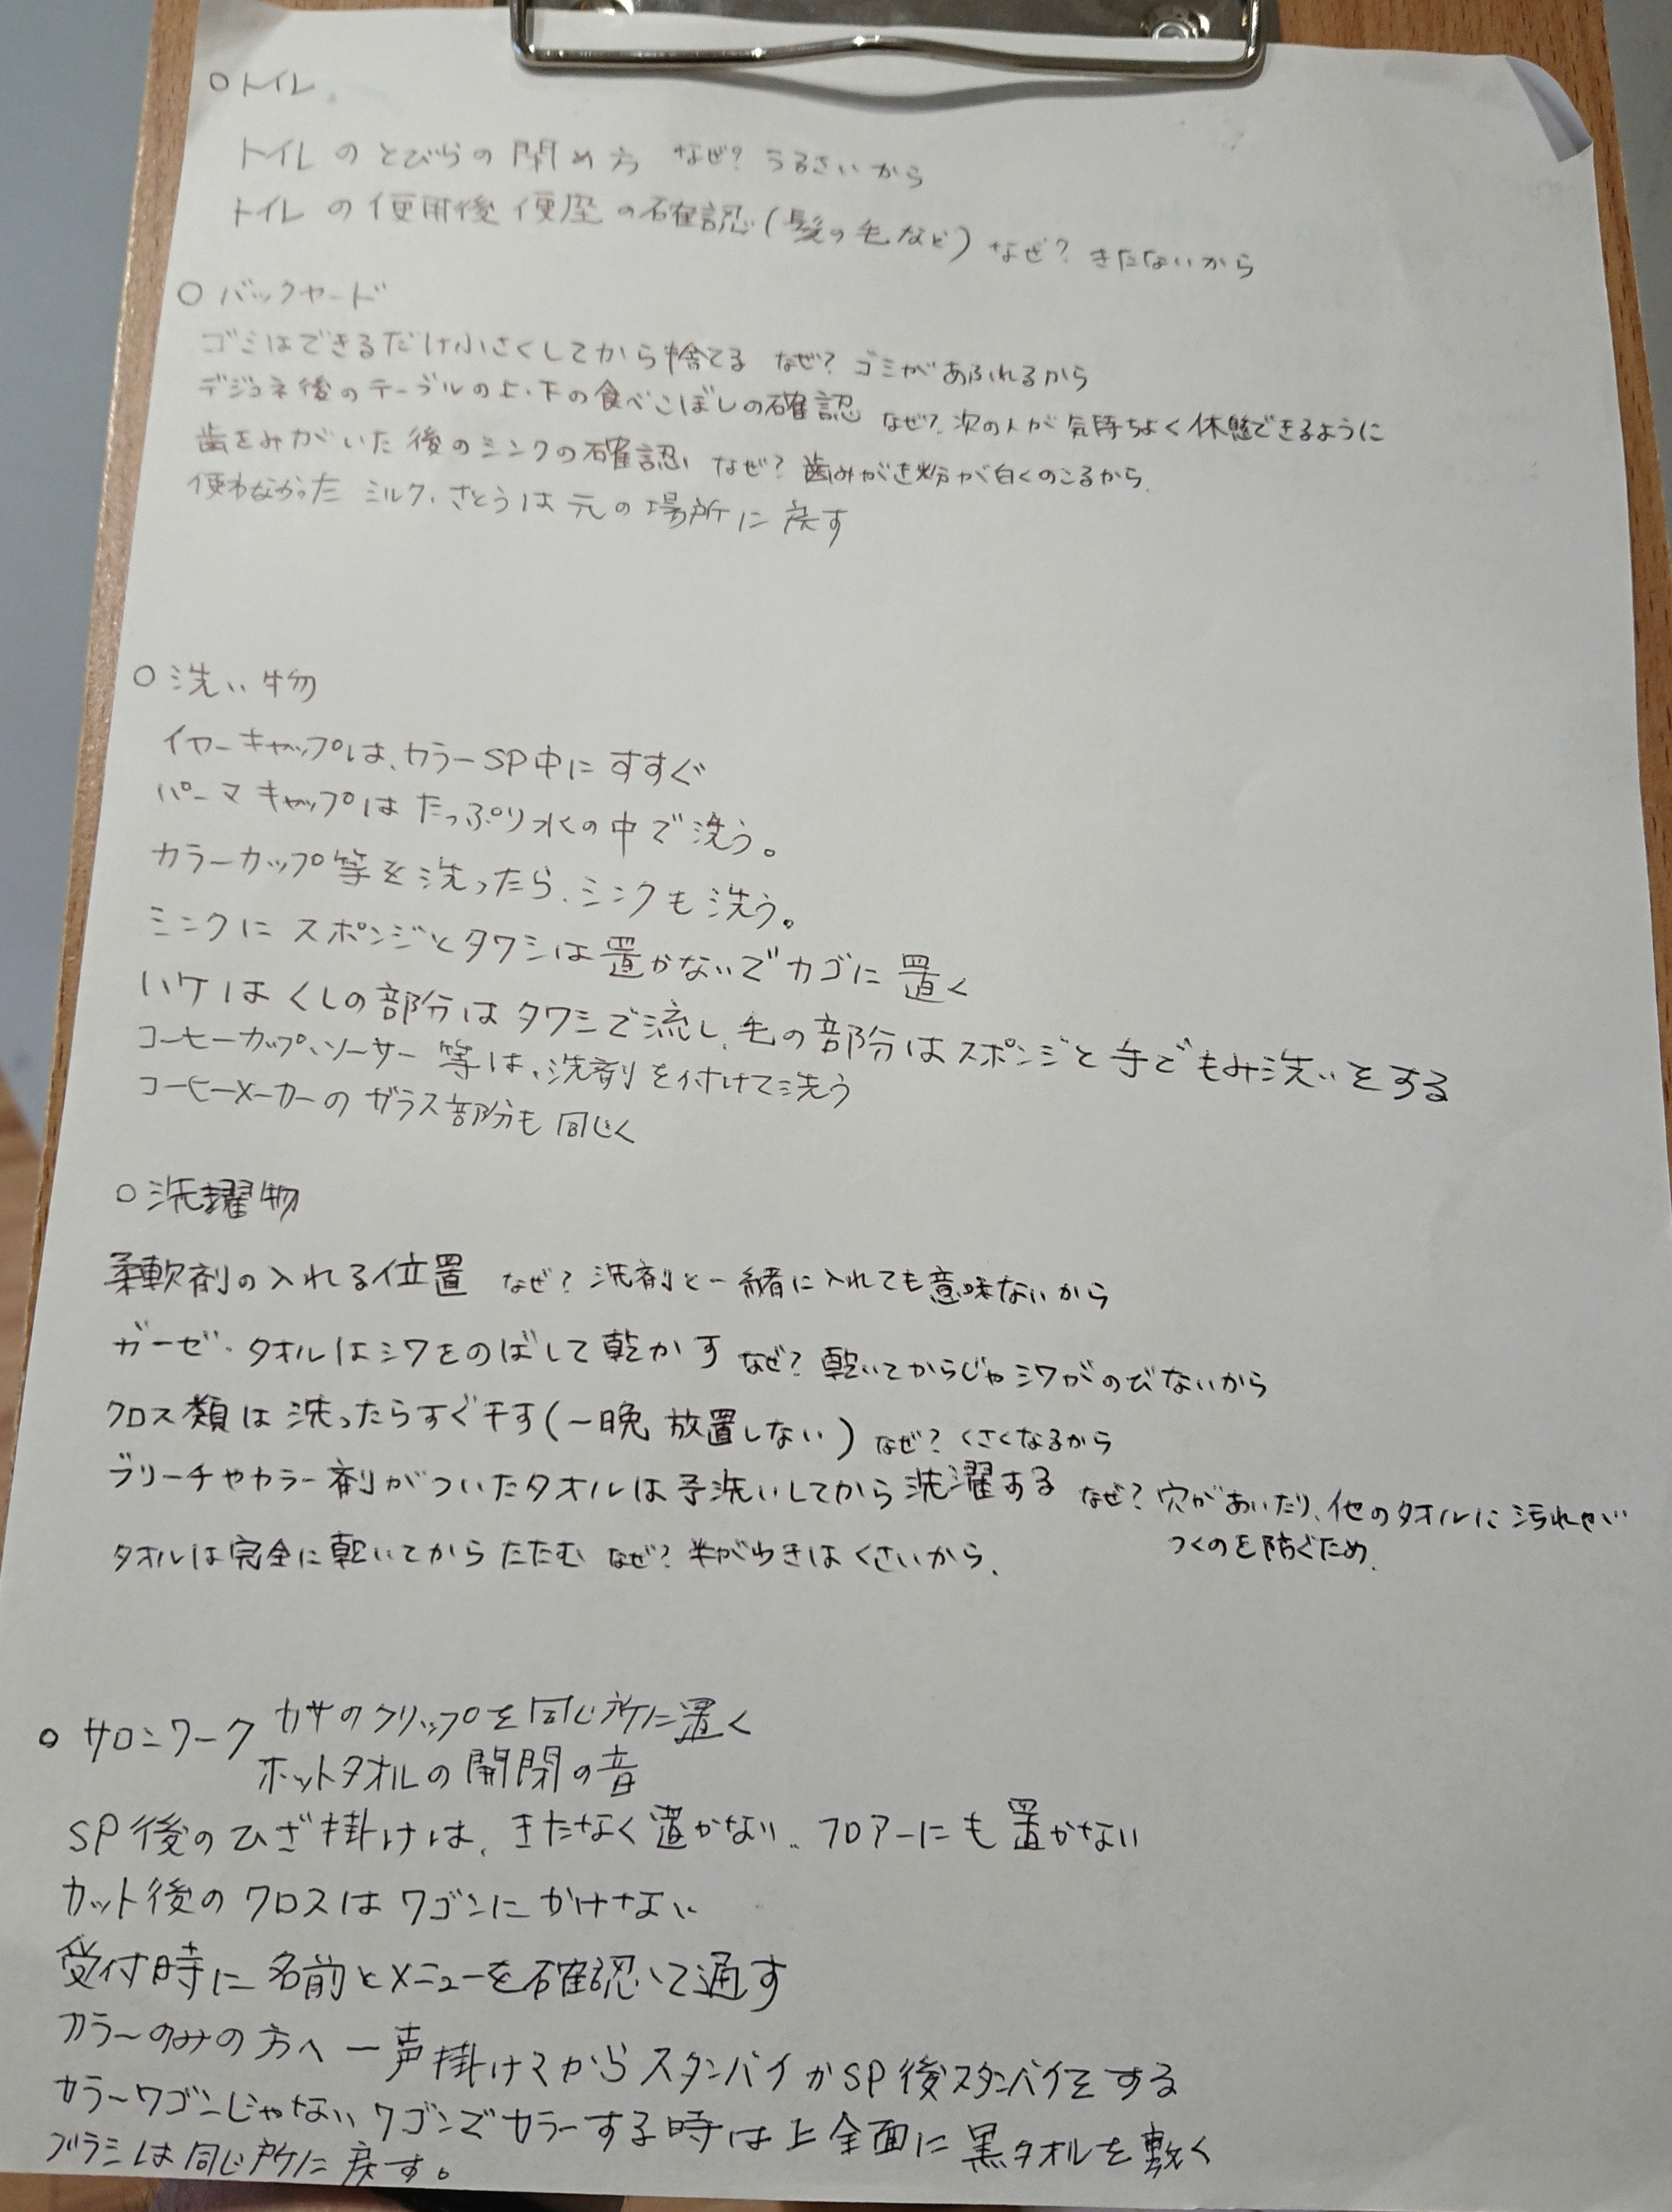 ○トイレ
トイレのとびらの閉め方 なぜ? うるさいから
トイレの使用後便座の確認(髪の毛など) なぜ? きたないから
○バックヤード
ゴミはできるだけ小さくしてから捨てる なぜ? ゴミがあふれるから
デジュネ後のテーブルの上・下の食べこぼしの確認 なぜ? 次の人が気持ちよく休憩できるように
歯をみがいた後のシンクの確認 なぜ? 歯みがき粉が白くのこるから
使わなかった ミルク、さとうは元の場所に戻す
○洗い物
イヤーキャップは、カラーSP中にすすぐ
パーマキャップはたっぷり水の中で洗う。
カラーカップ等を洗ったら、シンクも洗う。
シンクにスポンジとタワシは置かないでカゴに置く
ハケはくしの部分はタワシで流し、毛の部分はスポンジと手でもみ洗いをする
コーヒーカップ、ソーサー等は、洗剤を付けて洗う
コーヒーメーカーのガラス部分も同じく
○洗濯物
柔軟剤の入れる位置 なぜ? 洗剤と一緒に入れても意味ないから
ガーゼ・タオルはシワをのばして乾かす なぜ? 乾いてからじゃシワがのびないから
クロス類は洗ったらすぐ干す(一晩放置しない) なぜ? くさくなるから
ブリーチやカラー剤がついたタオルは予洗いしてから洗濯する なぜ? 穴があいたり、他のタオルに汚れが
つくのを防ぐため.
タオルは完全に乾いてからたたむ なぜ? 半がわきはくさいから.
○サロンワーク カサのクリップを同じ所に置く
ホットタオルの開閉の音
SP後のひざ掛けは、きたなく置かない、フロアーにも置かない
カット後のクロスはワゴンにかけない
受付時に名前とメニューを確認して通す
カラーのみの方へ一声掛けてからスタンバイかSP後スタンバイをする
カラーワゴンじゃないワゴンでカラーする時は上全面に黒タオルを敷く
ブラシは同じ所に戻す。